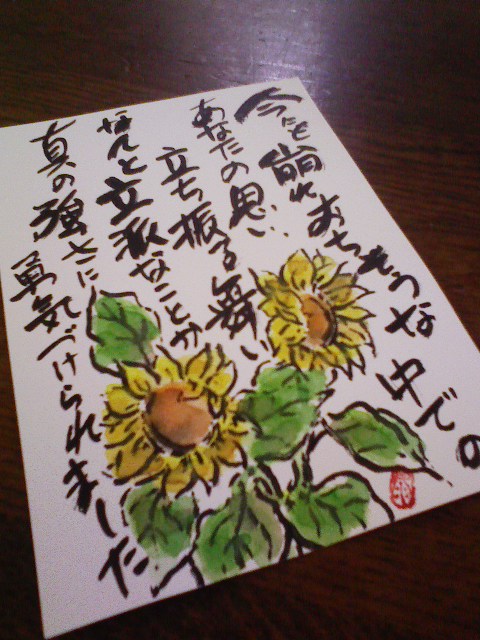 今にも崩れおちそうな中での
あなたの思い
立ち振る舞い
なんと立派なことか
真の強さに
勇気づけられました